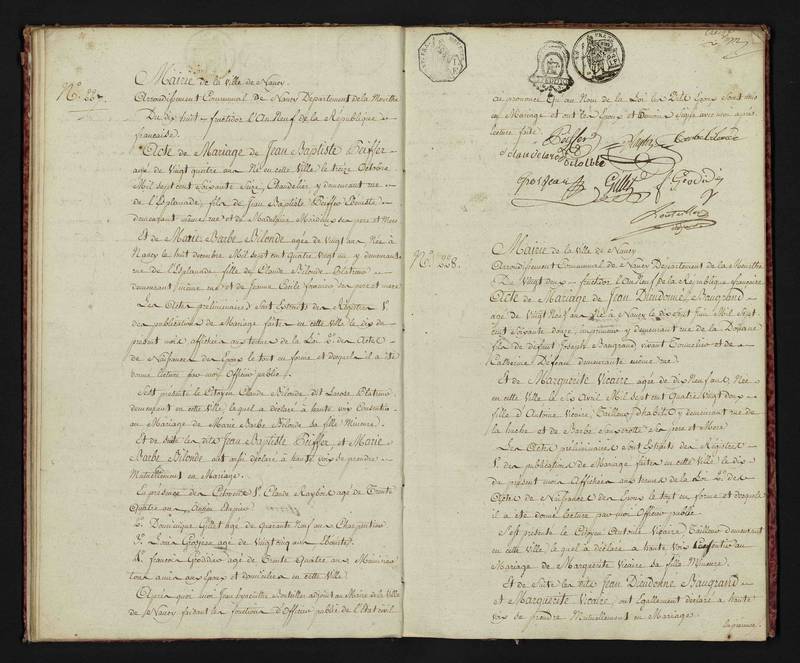 Nº. 337.
Mairie de la Ville de Nancy.
Arrondissement Communal de Nancy Département de la Meurthe
Du dix huit fructidor l'An Neuf de la République
française.
Acte de Mariage de Jean Baptiste Peiffer
age de Vingt quatre ans Né en cette Ville le treize Octobre
Mil sept cent soixante Seize, Chandelier y demeurant rue
de l'Esplanade, fils de Jean Baptiste Peiffer Ebéniste
demeurant même rue et de Madelaine ses père et Mère
Et de Marie Barbe Bilonde agée de Vingt ans Née à
Nancy le huit decembre Mil sept cent quatre Vingt un y demeurant
rue de l'Esplanade fille de Claude Bilonde Platineu
demeurant même rue et de Jeanne Cécile francois ses père et mère
Les Actes préliminaires sont Extraits des Registres 1º.
des publications de Mariage faites en cette Ville le dix de
présent mois affichées aux termes de la Loi 2º. des Actes
de Naissance des Epoux le tout en forme et desquels il a été
donné lecture par moi Officier public.
S'est présenté le Citoyen Claude Bilonde dit Larose Platineu
demeurant en cette Ville, lequel a déclaré à haute voix Consentir
au Mariage de Marie Barbe Bilonde sa fille Mineure.
Et de Suite les dits Jean Baptiste Peiffer et Marie
Barbe Bilonde ont aussi déclaré à haute voix se prendre
Mutuellement en Mariage.
En présence des Citoyens 1º. Claude Raybois agé de Trente
Quatre ans
2º. Dominique Gillet agé de quarante Neuf ans Charpentier
3º. Louis Grosjean agé de Vingt cinq ans Ebéniste
4º. françois Géodin agé de Trente Quatre ans
tous amis aux Epoux et domiciliés en cette Ville
Après quoi moi Jean hyacinthe Bouteiller adjoint au Maire de la Ville
de Nancy faisant les fonctions d'Officier public de l'Etat civil
ai prononcé qu'au Nom de la Loi les dits Epoux sont unis
en Mariage et ont les Epoux et Temoins signé avec moi après
lecture faite
Peiffer
Grosjean
Gillet
f. Géodin
Bouteiller
Nº. 338.
Mairie de la Ville de Nancy
Arrondissement Communal de Nancy Département de la Meurthe
Du Vingt deux fructidor l'An Neuf de la République francaise
Acte de Mariage de Jean Dieudonné Baugrand
age de Vingt Neuf ans Né à Nancy le dix sept Juin Mil Sept
cent Soixante douze, imprimeur y demeurant rue de la Douane
fils de défunt Joseph Baugrand vivant Tonnelier et de
Catherine Defeau demeurante même rue.
Et de Marguerite Vicaire agée de dix Neuf ans Née
en cette Ville le Six Avril Mil sept cent quatre Vingt deux
fille d'Antoine Vicaire, Tailleur d'habits y demeurant rue de
la hache et de Barbe ses père et Mère
Les Actes préliminaires sont Extraits des Registres
1º. des publications de Mariage faites en cette Ville le dix
de présent mois Affichées aux termes de la Loi 2º. des
Actes de Naissance des Epoux le tout en forme et desquels
il a été donné lecture par moi Officier public
S'est présenté le Citoyen Antoine Vicaire, Tailleur demeurant
en cette Ville, lequel a déclaré à haute voix Consentir au
Mariage de Marguerite Vicaire sa fille Mineure.
Et de Suite les dits Jean Dieudonné Baugrand
et Marguerite Vicaire, ont Egallement déclaré a haute
voix se prendre Mutuellement en Mariage.